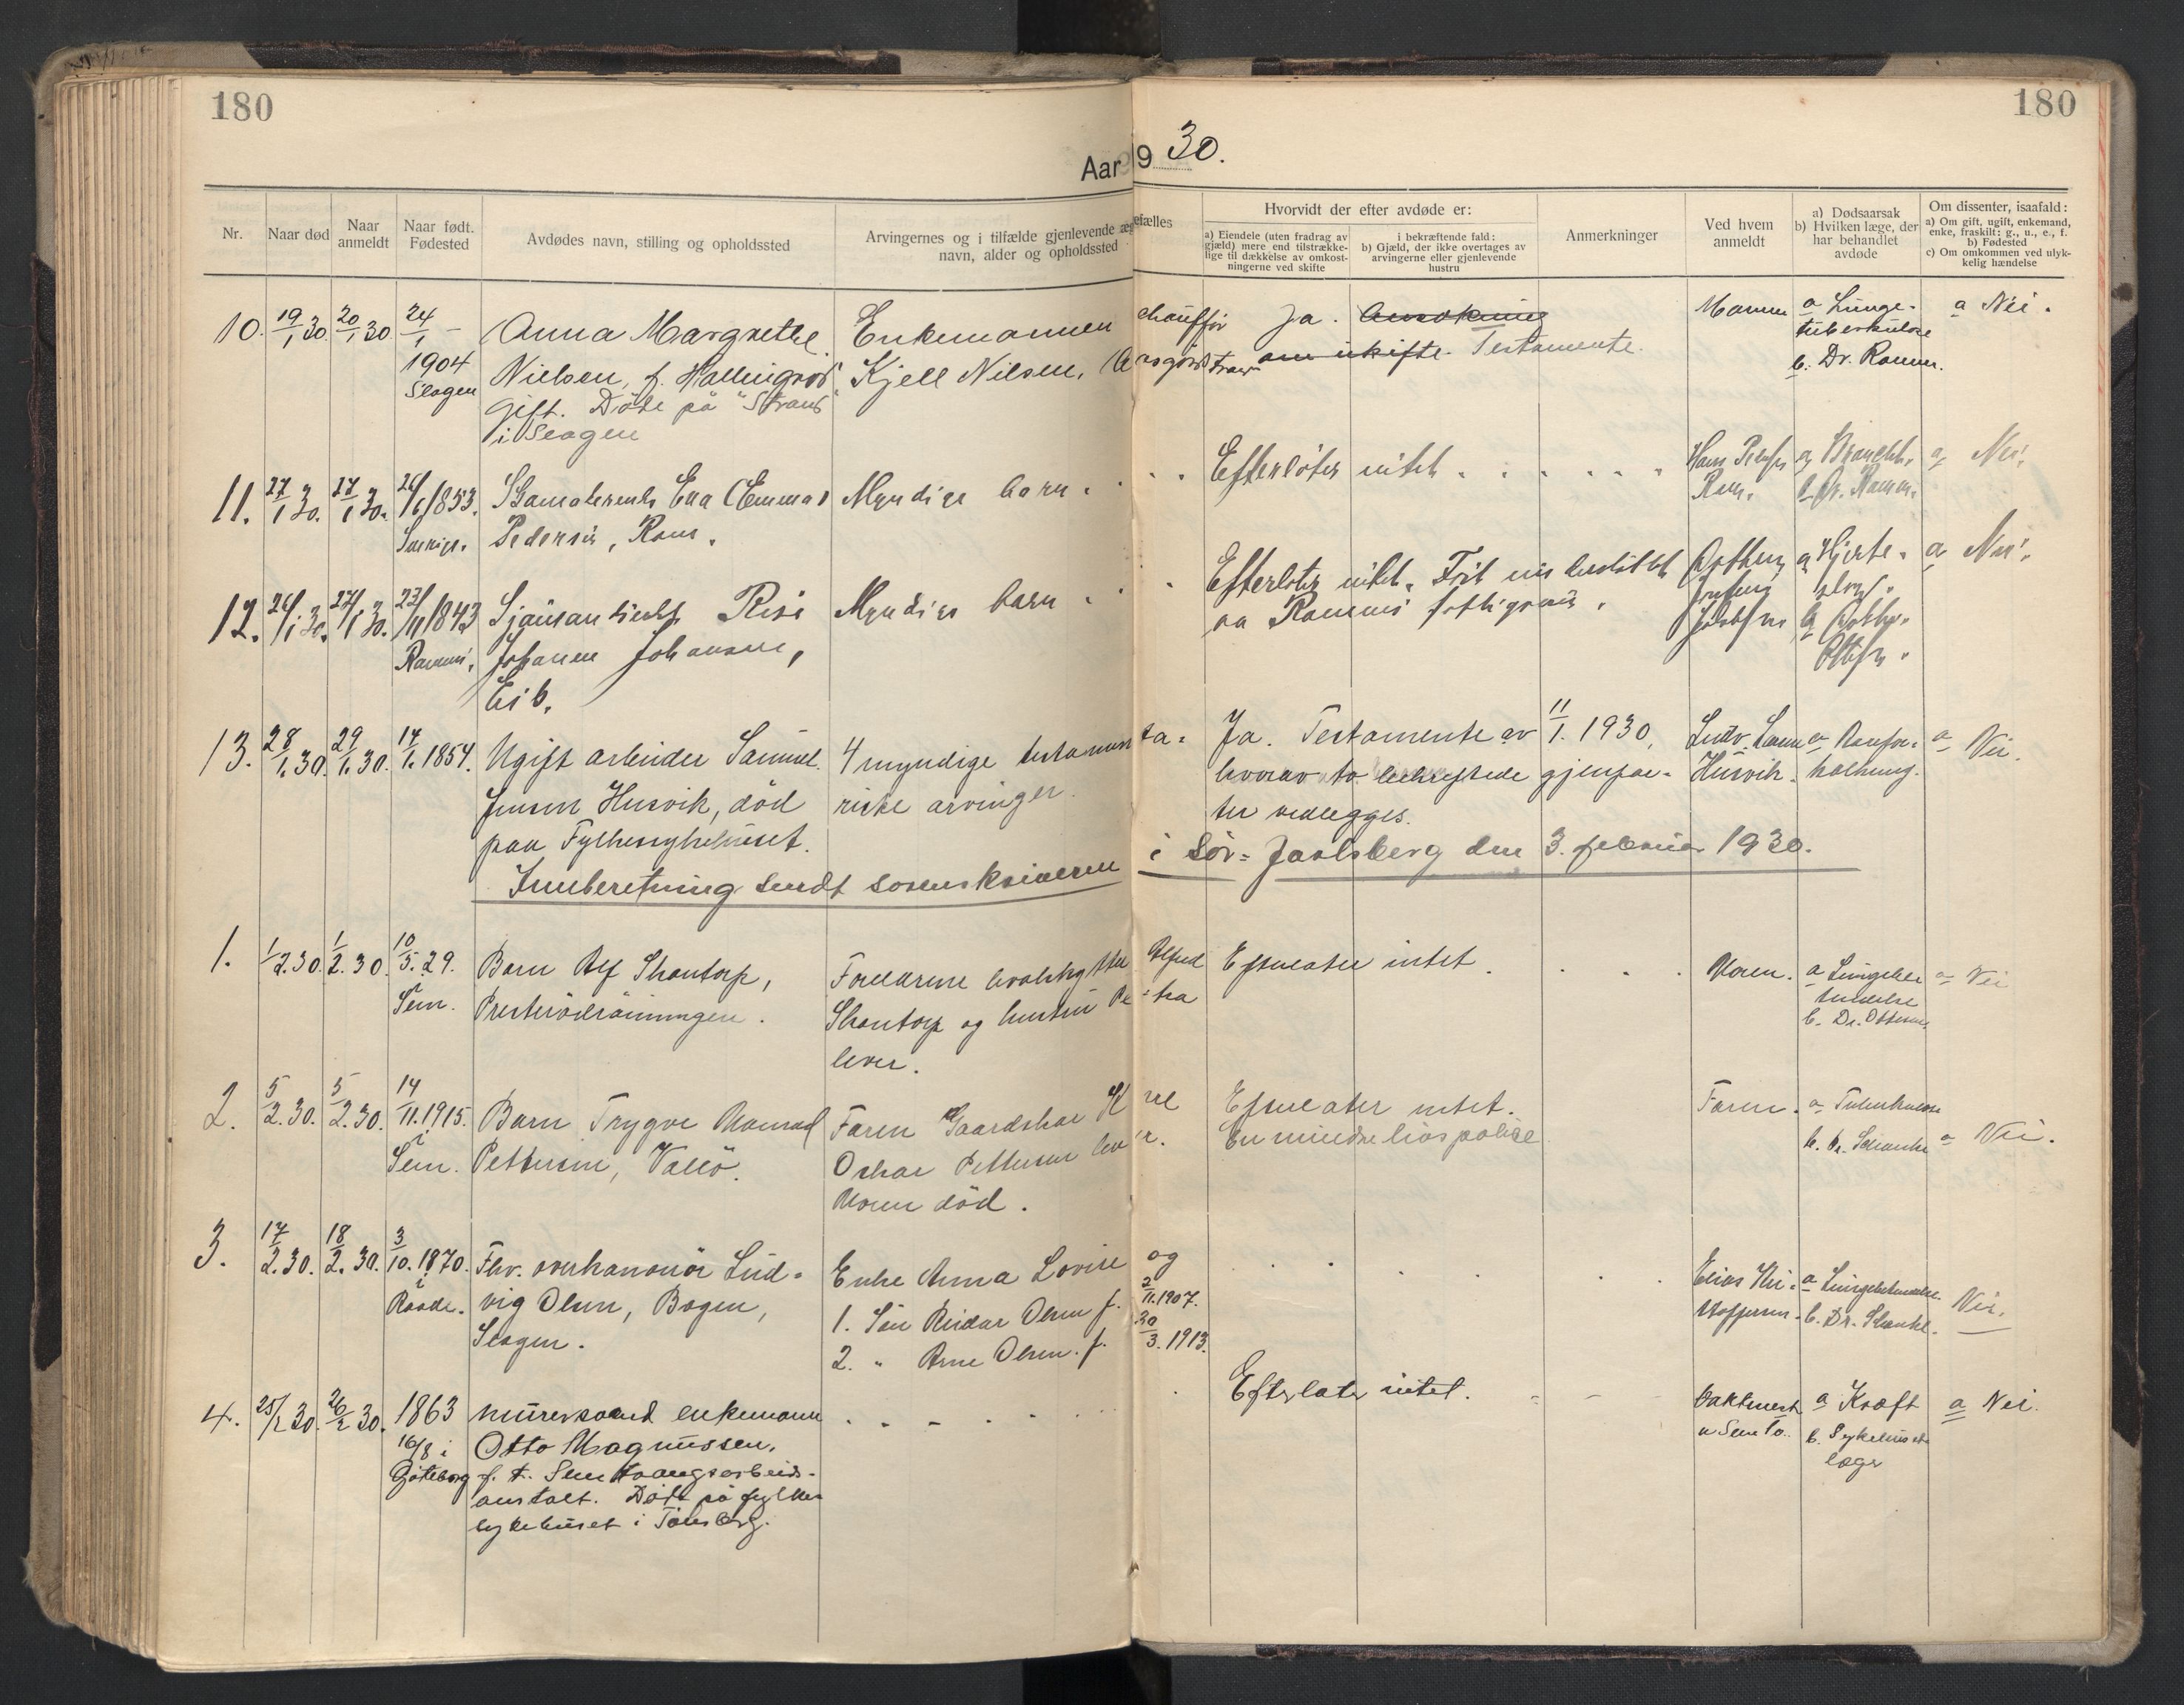 180
180
Aar 19 30.
Nr.
Naar død
Naar anmeldt
Naar født. Fødested
Avdødes navn, stilling og opholdssted
Arvingernes og i tilfælde gjenlevende æg efælles
navn, alder og opholdssted
Hvorvidt der efter avdøde er:
a) Eiendele (uten fradrag av gjæld) mere end tilstrække-lige til dækkelse av omkost-ningerne ved skifte
i bekræftende fald:
b) Gjæld, der ikke overtages av arvingerne eller gjenlevende hustru
Anmerkninger
Ved hvem anmeldt
a) Dødsaarsak
b) Hvilken læge, der har behandlet avdøde
Om dissenter, isaafald:
a) Om gift, ugift, enkemand, enke, fraskilt: g., u., e., f.
b) Fødested
c) Om omkommen ved ulyk-kelig hændelse
10. 19/1 30. 20/1 30 24/1 1904 Slagen
Anna Margrethe
Nielsen, f. Hallingrød
Gift. Døde på "Strand"
i Slagen
Enkemannen chauffør
Kjell Nilsen,
Ja.
Testamente.
Mannen
a Lunge-
tuberkulose
b. Dr. Ramm.
a Nei.
11. 27/1 30. 27/1 30. 26/6 1853. Sverige.
Eva (Emma)
Pedersen, Ram.
Myndige barn.
Efterlater intet.
Hans
Ram.
a Bronchit.
b Dr. Ramm.
a Nei.
12. 26/1 30. 27/1 30. 23/11 1843 Ramnes.
Johanne Johansen,
Eik.
Myndige barn.
Efterlater intet.
aa Ramnes fattigvæsen.
a Hjerte-
slag.
a Nei.
13. 28/1. 30. 29/1. 30. 14/1. 1854.
Ugift arbeider Samuel
Jensen Husvik, død
paa Fylkessykehuset.
4 myndige testamenta-
riske arvinger.
Ja. Testamente av 11/1. 1930,
hvorav to bekreftede gjenpar-
ter vedlegges.
Husvik.
a
a Nei.
Innberetning sendt sorenskriveren i Sør-Jarlsberg den 3. februar 1930.
1. 1/2. 30. 1/2. 30 10/5. 29. Sem.
Barn Alf Skontorp,
Presterødrønningen.
Foreldrene hvalskytter Alfred
Skontorp og hustru Petra
lever.
Efterlater intet.
Moren.
a Lungebe-
tendelse
b. Dr. Ottesen
a Nei
2. 5/2. 30. 5/2. 30. 14/11. 1915. i Sem.
Barn Trygve Konrad
Pettersen, Vallø.
Faren Gaardskar
Oskar Pettersen lever.
Moren død.
Efterlater intet.
En mindre livspolise
Faren.
a Tuberkulose
b. Dr. Schanke
a Nei.
3. 17/2. 30. 18/2. 30. 3/10. 1870. i Raade.
Fhv. overkanonér Lud-
vig Olsen, Bogen,
Slagen.
Enke Anna Lovise og
1. Søn Reidar Olsen f. 2/11. 1907.
2. " Arne Olsen. f. 30/3. 1913.
Elias Kri-
stoffersen.
a Lungebetendelse.
b. Dr. Schanke.
Nei.
4. 25/2 30. 26/2 30. 1863 16/8 i Göteborg
murersvend enkemann
Otto Magnussen,
f. t. Sem tvangsarbeids-
anstalt. Døde på fylkes
sykehuset i Tønsberg.
Efterlater intet.
Vaktmest.
a Kræft
b. Sykehusets
læge
a Nei.